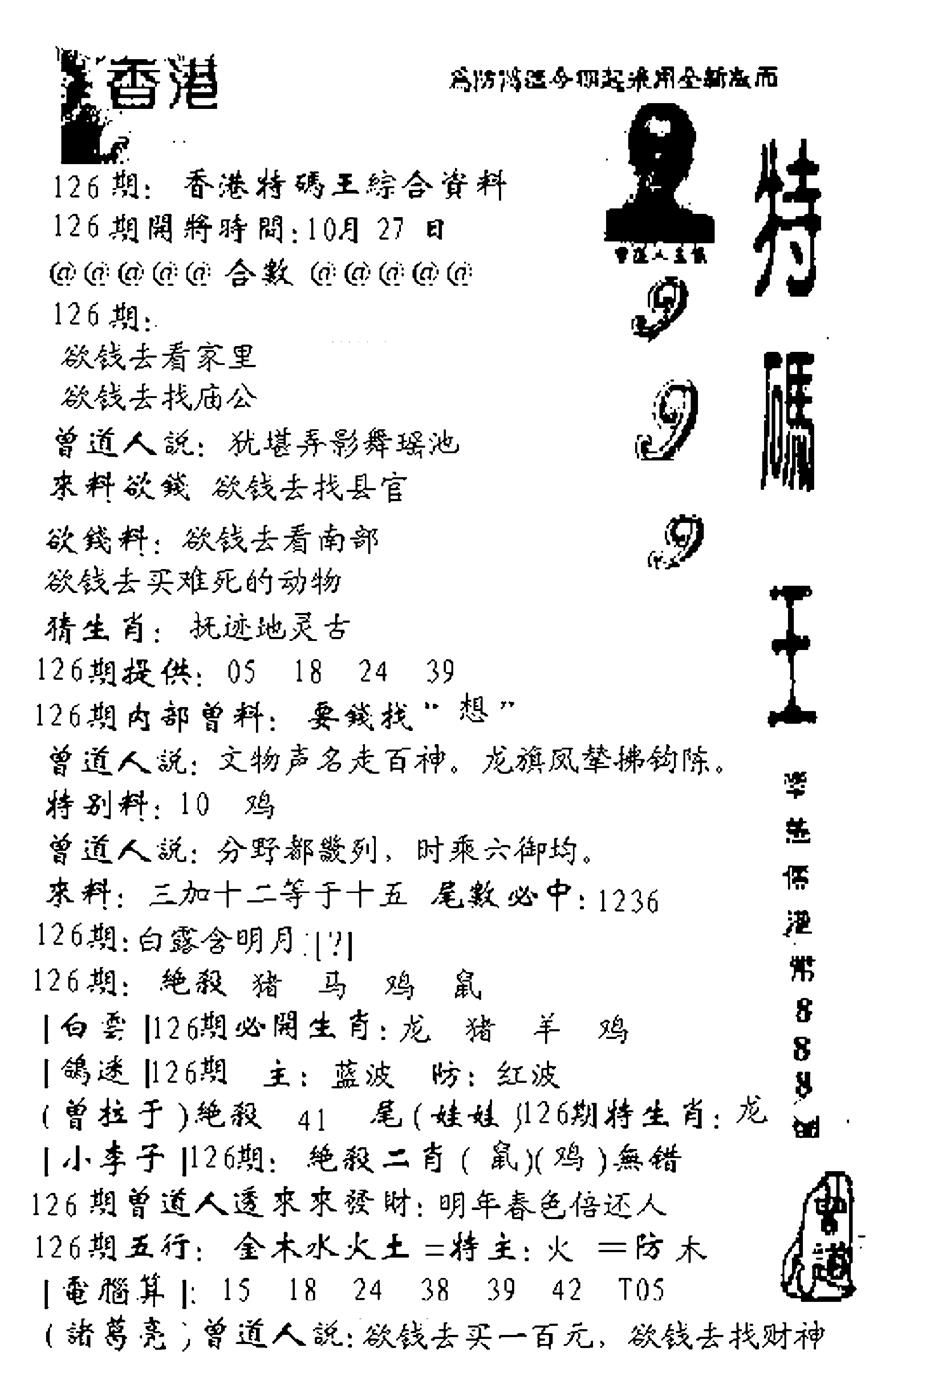 香港
特碼王
999
126期： 香港特碼王綜合資料
126期開將時間：10月 27 日
@@@@@ 合數 @@@@@
126期：
欲钱去看家里
欲钱去找庙公
曾道人説：犹堪弄影舞瑶池
來料欲錢 欲钱去找县官
欲錢料：欲钱去看南部
欲钱去买难死的动物
猜生肖： 抚迹地灵古
126期提供：05 18 24 39
126期内部曾料： 要錢找“想”
曾道人説：文物声名走百神。龙旗凤辇拂钩陈。
特别料：10 鸡
曾道人説：分野都畿列，时乘六御均。
來料： 三加十二等于十五 尾數必中：1236
126期：白露含明月：[?]
126期： 絶殺 猪 马 鸡 鼠
|白雲|126期必開生肖：龙 猪 羊 鸡
|鴿迷|126期 主：蓝波 防：红波
(曾拉于)絶殺 41 尾(娃娃)126期特生肖：龙
|小李子|126期： 絶殺二肖(鼠)(鸡)無错
126期曾道人透來來發財：明年春色倍还人
126期五行： 金木水火土=特主：火 =防木
|電腦算|：15 18 24 38 39 42 T05
(諸葛亮)曾道人説：欲钱去买一百元，欲钱去找财神